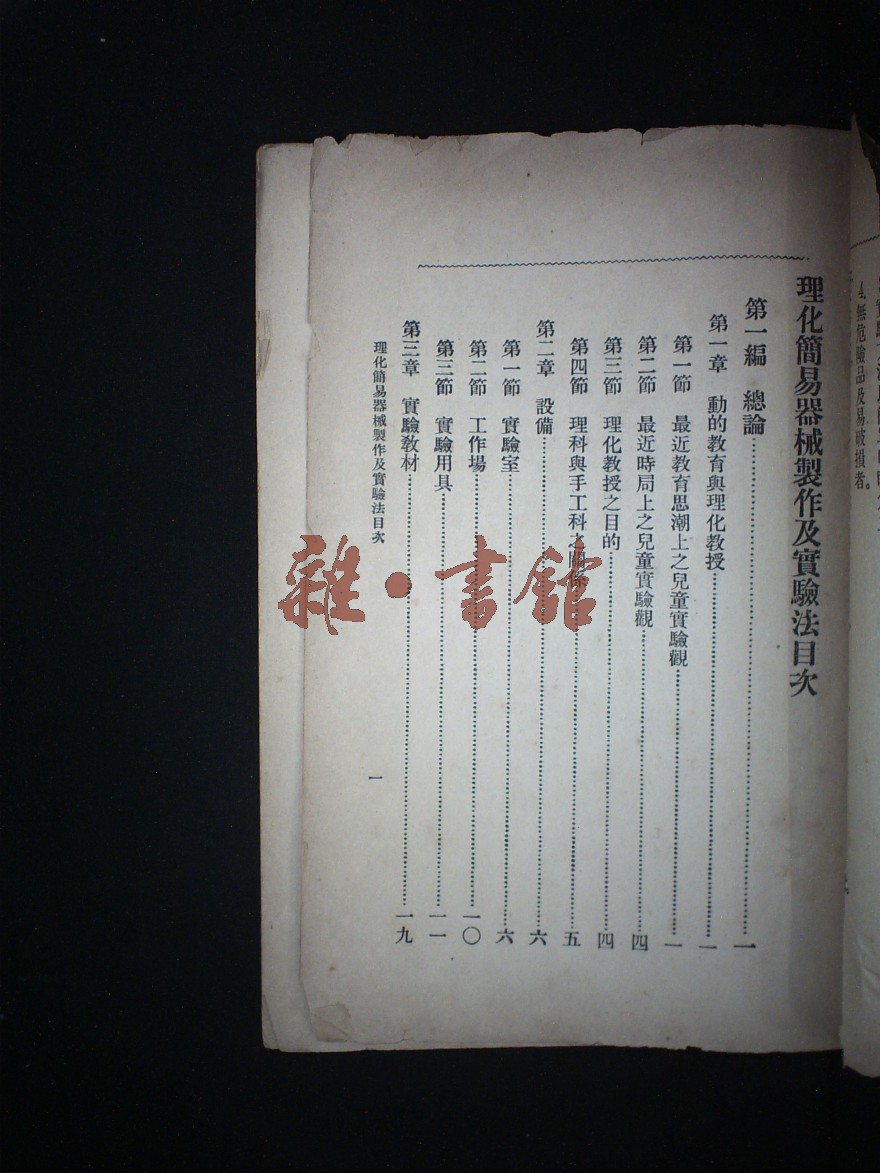 4. 無危險品及易破損者。
理化簡易器械製作及實驗法目次
第一編 總論…一
第一章 動的教育與理化教授…一
第一節 最近教育思潮上之兒童實驗觀…一
第二節 最近時局上之兒童實驗觀…四
第三節 理化教授之目的…四
第四節 理科與手工科之關係…五
第二章 設備…六
第一節 實驗室…六
第二節 工作場…一〇
第三節 實驗用具…一一
第三章 實驗教材…一九
理化簡易器械製作及實驗法目次
一
雜·書館